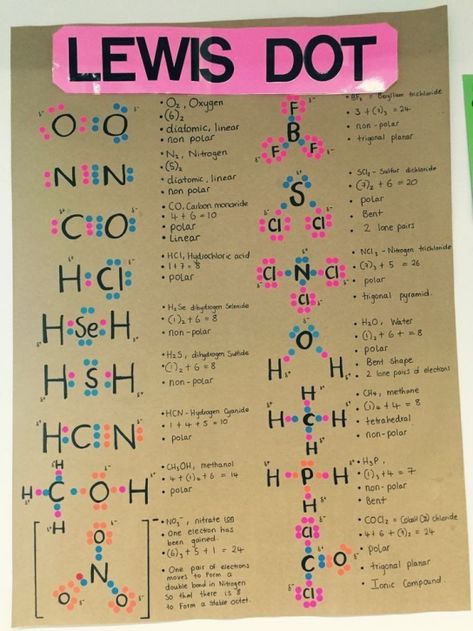 LEWIS DOT
O O
• O₂, Oxygen
• (6)₂
• diatomic, linear
• non polar
N N
• N₂, Nitrogen
• (5)₂
• diatomic, linear
• non polar
C O
• CO, Carbon monoxide
• 4 + 6 = 10
• polar
• Linear
H Cl
• HCl, Hydrochloric acid
• 1 + 7 = 8
• polar
H Se H
• H₂Se dihydrogen Selenide
• (1)₂ + 6 = 8
• non-polar
H S H
• H₂S, dihydrogen Sulfide
• (1)₂ + 6 = 8
• non-polar
H C N
• HCN - Hydrogen Cyanide
• 1 + 4 + 5 = 10
• polar
H
H C O H
H
• CH₃OH, methanol
• 4 + (1)₄ + 6 = 14
• polar
O
N
O O
• NO₃⁻, nitrate ion
One electron has
been gained.
• (6)₃ + 5 + 1 = 24
• One pair of electrons
moves to form a
double bond in Nitrogen
So that there is 8
to Form a Stable octet.
F
B
F F
trichloride
3 + (7)₃ = 24
• non-polar
• trigonal planar
S
Cl Cl
• SCl₂ - Sulfur dichloride
• (7)₂ + 6 = 20
• polar
• Bent
• 2 lone pairs
Cl N Cl
Cl
• NCl₃ - Nitrogen trichloride
• (7)₃ + 5 = 26
• polar
• trigonal pyramid.
O
H H
• H₂O, Water
• (1)₂ + 6 = 8
• polar
• Bent Shape
• 2 lone pairs of electrons
H
H C H
H
• CH₄, methane
• (1)₄ + 4 = 8
• tetrahedral
• non-polar
H P H
H
• H₃P,
• (1)₃ + 4 = 7
• non-polar
• Bent
Cl
C O
Cl
• COCl₂ = Cobalt (2) chloride
• 4 + 6 + (7)₂ = 24
• polar
• trigonal planar
• Ionic Compound.